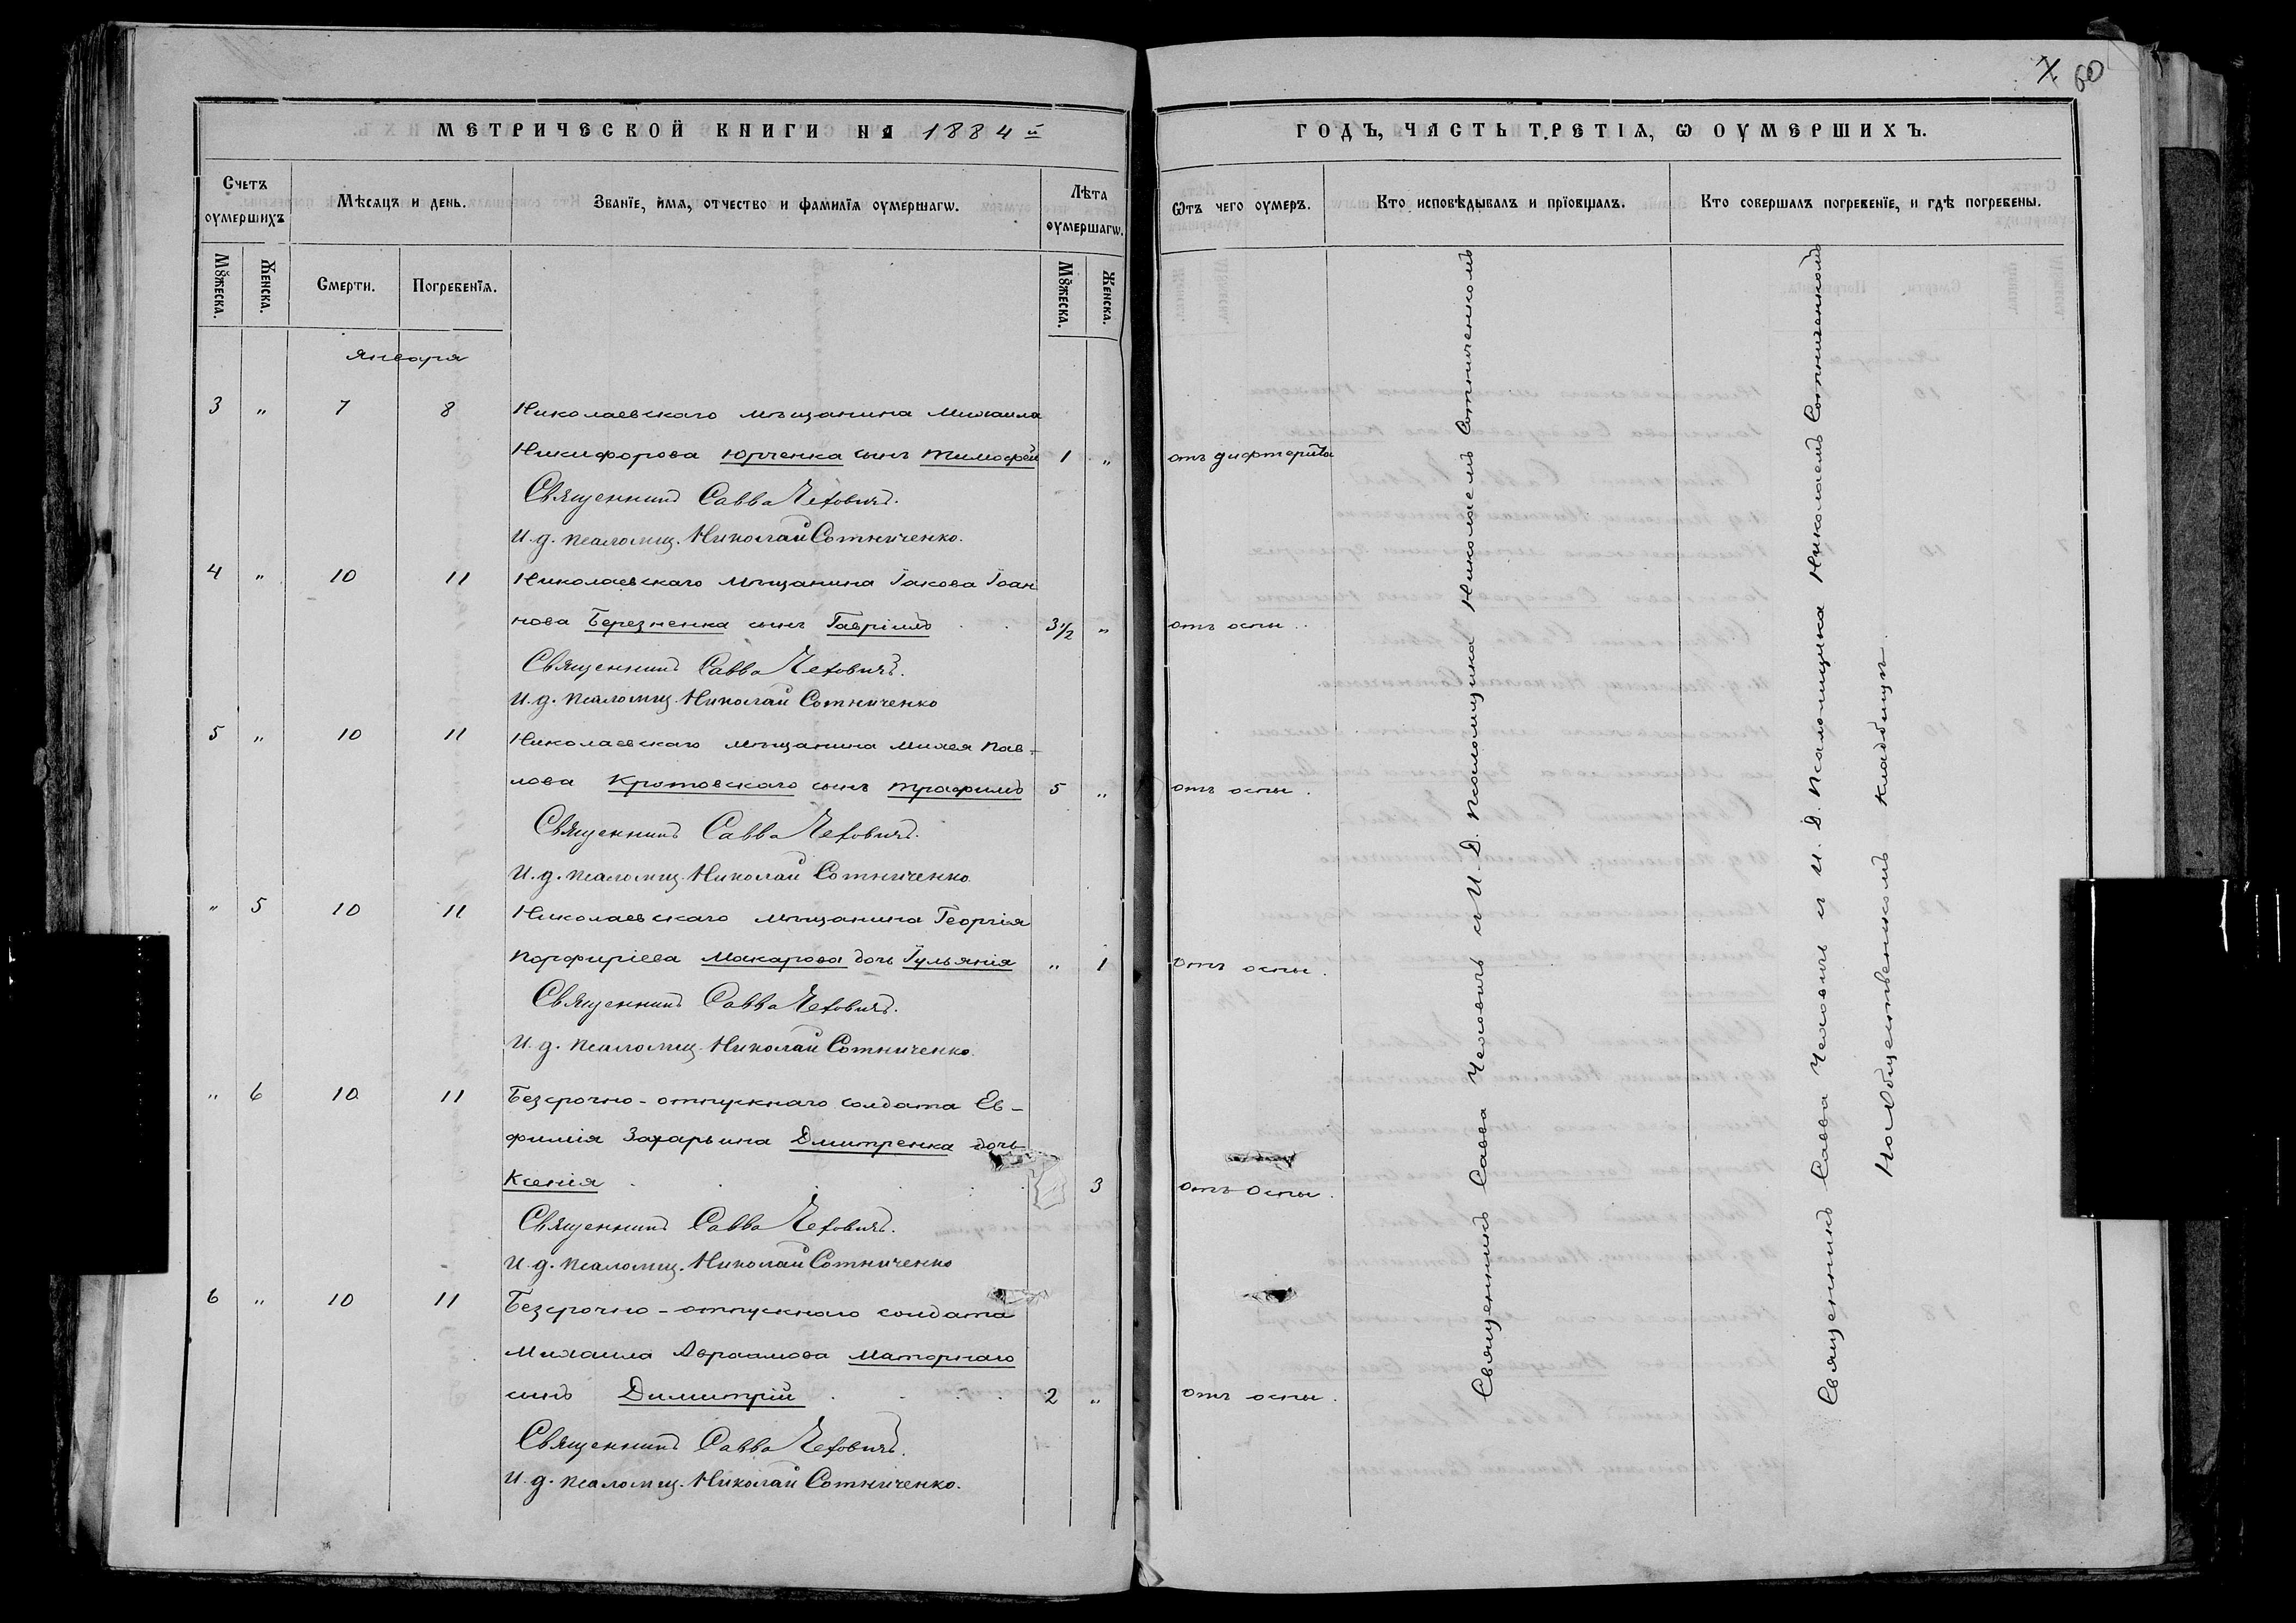 МЕТРИЧЕСКОЙ КНИГИ НА 1884 й
Счетъ оумершихъ
Мѣсяцъ и день.
Званїе, имѧ, отчество и фамилїѧ оумершагѡ.
Лѣта оумершагѡ.
Мꙋжеска.
Женска.
Смерти.
Погребенїѧ.
Мꙋжеска.
Женска.
января
3 " 7 8 Николаевскаго мѣщанина Михаила
Никифорова Юрченка сынъ Тимофей 1 "
Священникъ Савва Чехович.
И. д. псаломщ. Николай Сотниченко.
4 " 10 11 Николаевскаго мѣщанина Іакова Іоан
нова Березненка сынъ Гавріилъ 3 1/2 "
Священникъ Савва Чеховичъ.
И. д. псаломщ. Николай Сотниченко
5 " 10 11 Николаевскаго мѣщанина Михея Пав-
лова Кротовскаго сынъ Трофимъ 5 "
Священникъ Савва Чеховичъ.
И. д. псаломщ. Николай Сотниченко
" 5 10 11 Николаевскаго мѣщанина Георгія
Порфиріева Макарова дочь Іульянія " 1
Священникъ Савва Чеховичъ.
И. д. псаломщ. Николай Сотниченко.
" 6 10 11 Безсрочно-отпускнаго солдата Ев-
фимія Захарьина Дмитренка дочь
Ксенія 3
Священникъ Савва Чеховичъ.
И. д. псаломщ. Николай Сотниченко
6 " 10 11 Безсрочно-отпускнаго солдата
Михаила Авраамова Маторнаго
сынъ Димитрій 2 "
Священникъ Савва Чеховичъ.
И. д. псаломщ. Николай Сотниченко.
60
ГОДЪ, ЧАСТЬ ТРЕТІѦ, Ѡ ОУМЕРШИХЪ.
Ѿтъ чего оумеръ.
Кто исповѣдывалъ и прїобщалъ.
Кто совершалъ погребенїе, и гдѣ погребены.
отъ дифтерита
отъ оспы
отъ оспы.
отъ оспы.
отъ оспы.
отъ оспы.
Священникъ Савва Чеховичъ съ И. Д. Псаломщика Николаемъ Сотниченкомъ
Священникъ Савва Чеховичъ съ И. Д. Псаломщика Николаемъ Сотниченкомъ
На Общественномъ кладбищѣ.